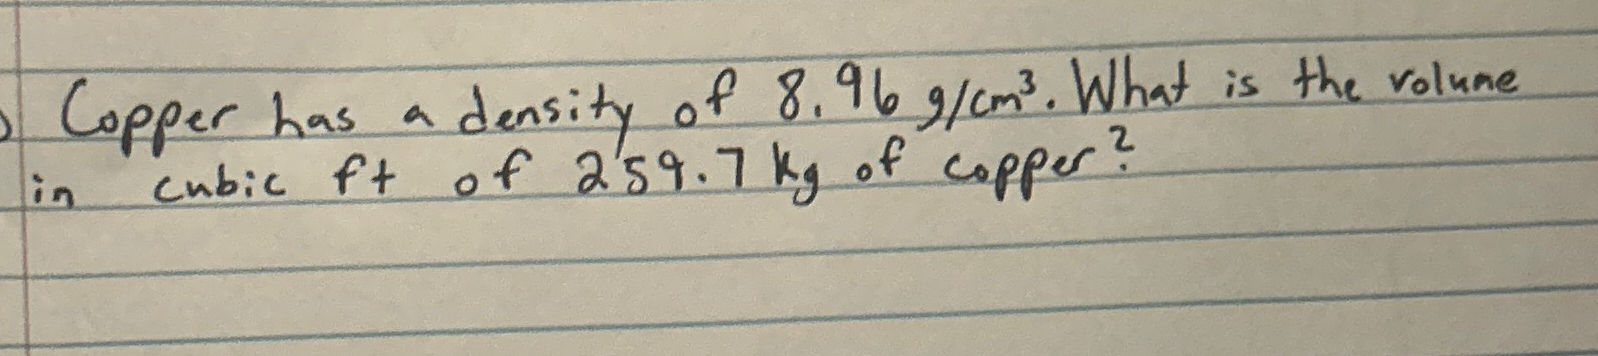 Copper has a density of 8.96 g/cm³. What is the volume
in cubic ft of 259.7 kg of copper?